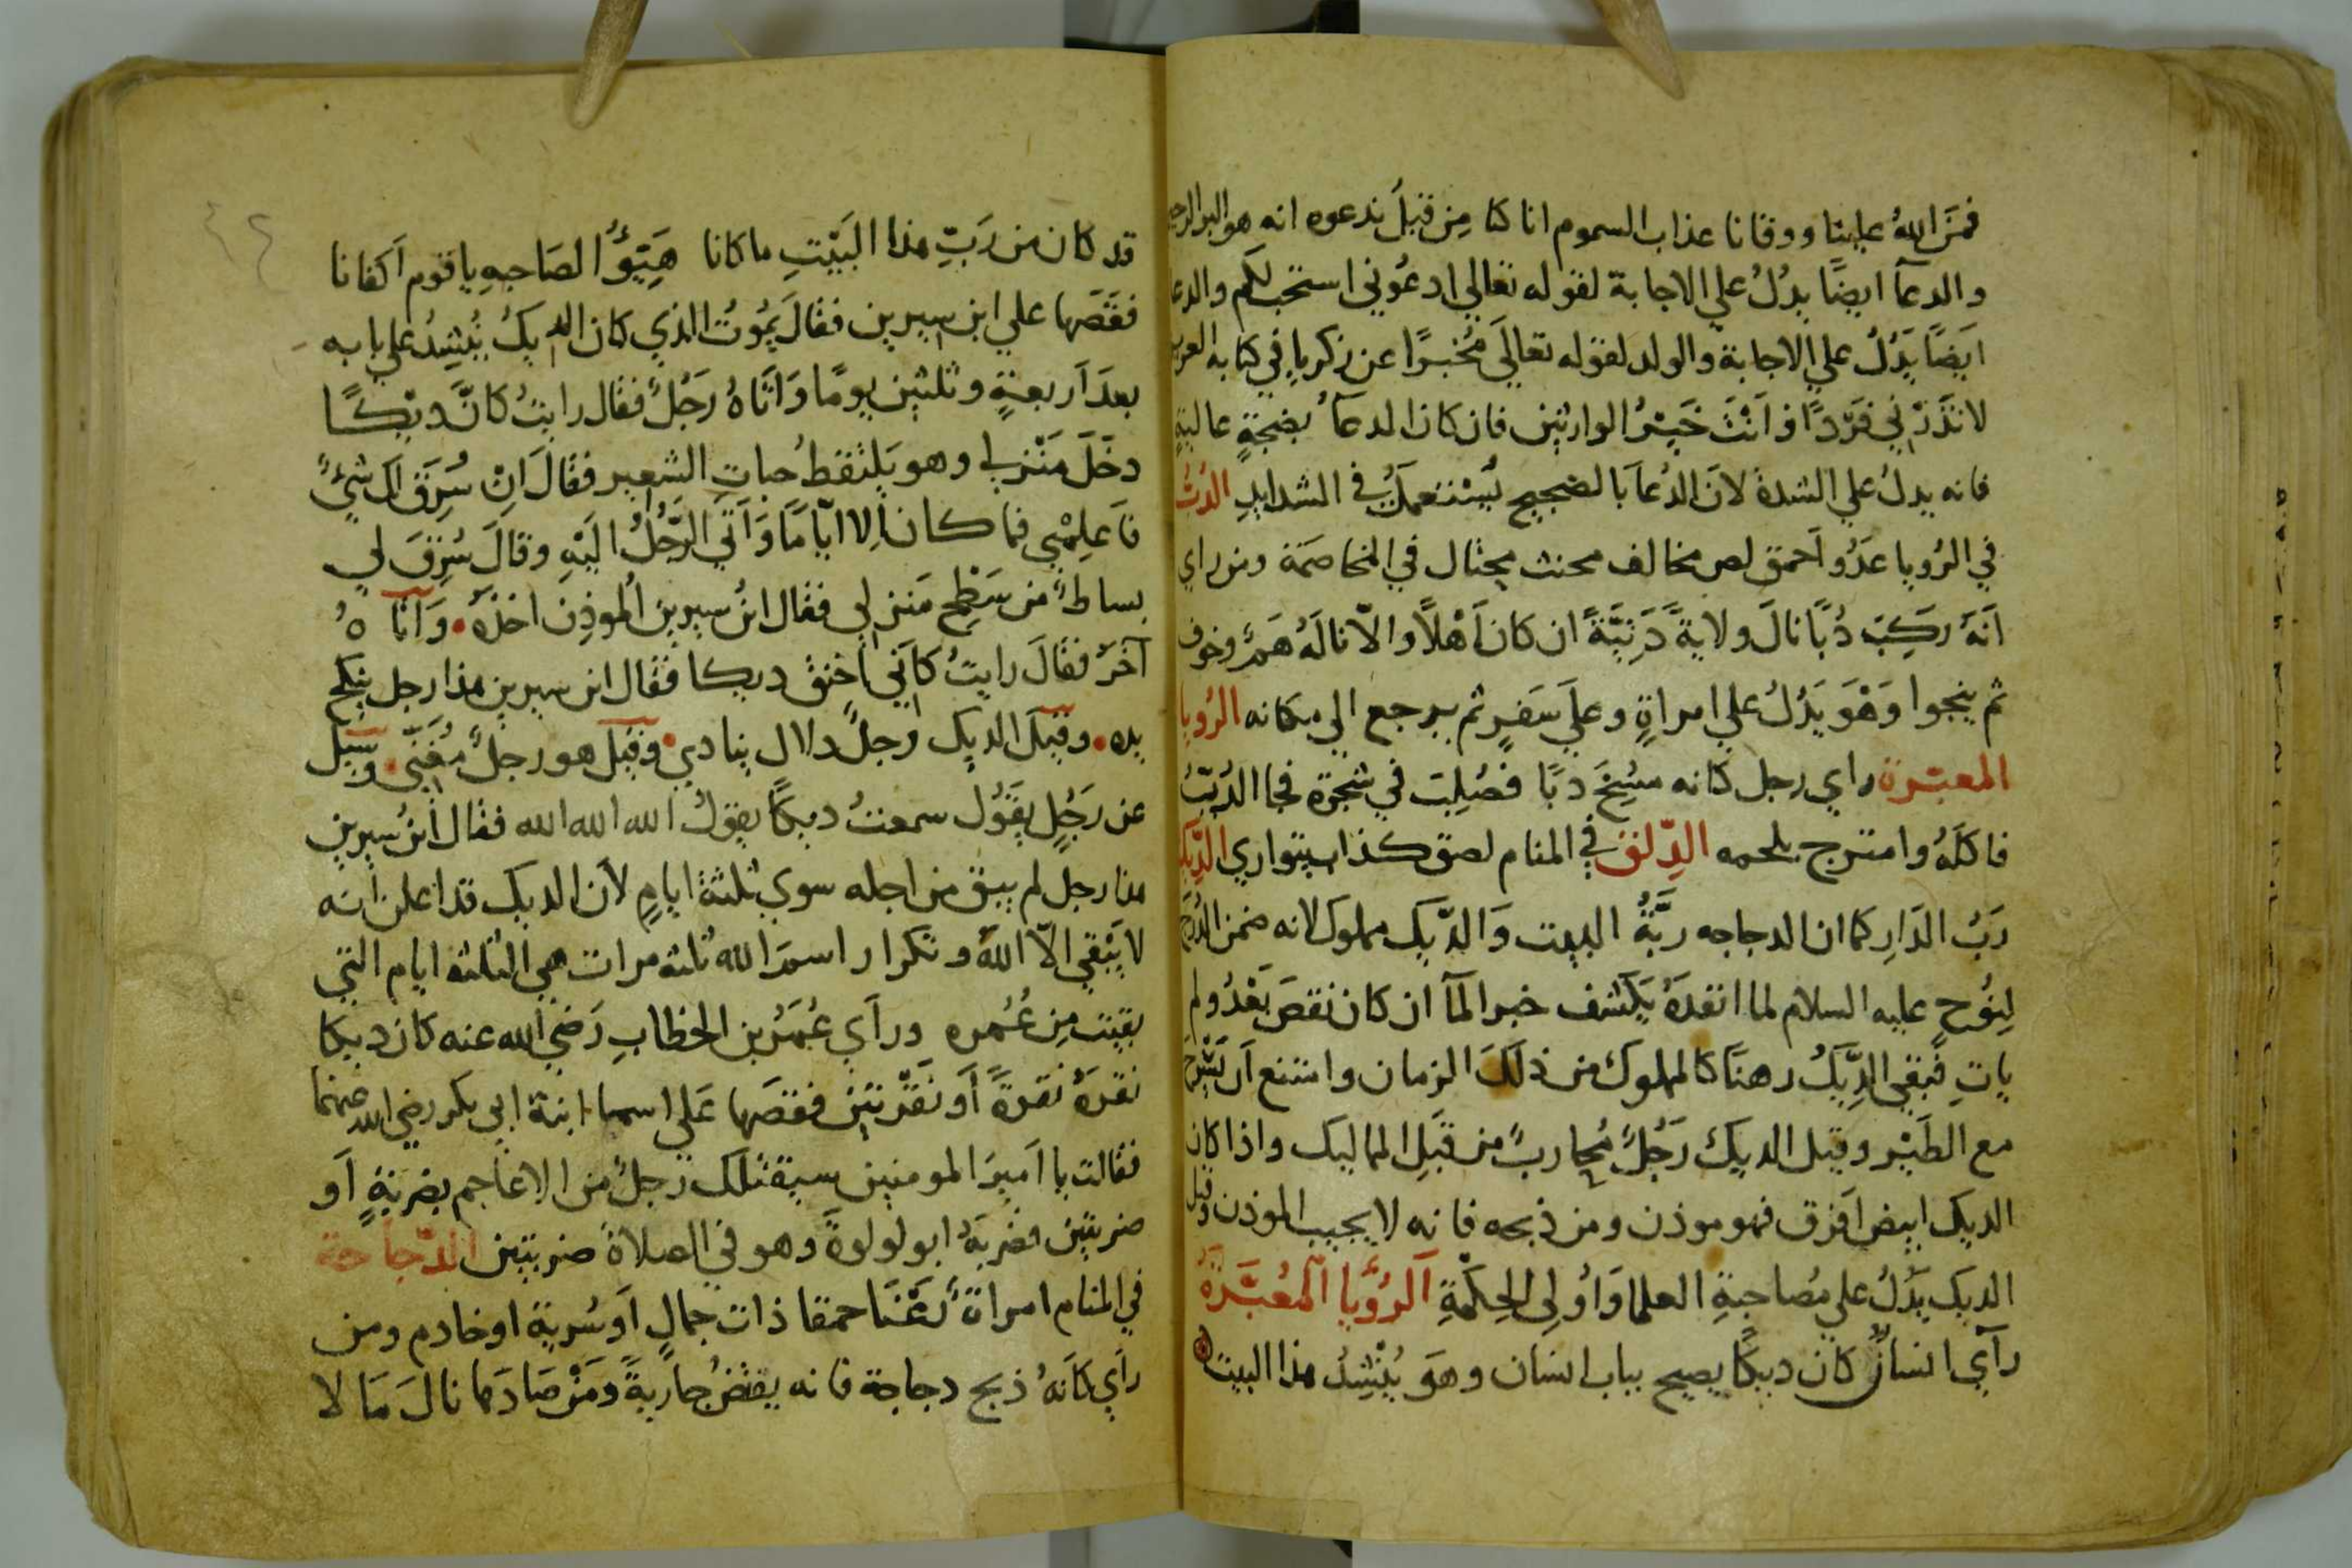 فمَن الله علينا ووقانا عذاب السموم انا كنا من قبل ندعوه انه هو البر الرحيم
والدعآ ايضًا يدُلُ علي الاجابة لقوله تعالي ادعُوني استجب لكم والدعا
ايضًا يَدُلُ علي الاجابة والولد لقوله تعالَي مُخبرًا عن زكريا في كتابه العزيز
لا تذَرْني فَرْدًا وَاَنْتَ خَيرُ الوارثين فان كان الدعآ بضجةٍ عاليةٍ
فانه يدلُ علي الشدة لان الدُعآ بالضجيج يُستعملُ في الشدايدِ الدُبُ
في الرُويا عدُو احمق لص مخالف مخنث محتال في المخاصمَة ومن راي
اَنَهُ ركِبَ دُبًا نالَ ولايةً دَنِيَّةً ان كان اَهْلًا والّا نالَهُ هَم وخوف
ثم ينجوا وَهْوَ يَدُلُ علي امراةٍ وعلَي سَفرٍ ثم يرجع الي مكانه الرُويا
المعبّرة راي رجل كانه مسُخَ دبًا فصُلِبَ في شجرة فجا الدُبُّ
فاكلَهُ وامتزج بلحمه الدِلق في المنام لص كذاب يتواري الدِيك
رَبُ الدَارِ كما ان الدجاجه ربَّةُ البيت وَالدّيك مملوك لانه ضمن
لِنُوحٍ عليه السلام لما انفدَهُ يكشف خبر المآ ان كان نقصَ بَعْدُ ولم
ياتِ فبقي الدِّيكُ رهنًا كالمملوك من ذلكَ الزمان وامتنع اَن
مع الطَيْر وقيل الديك رَجُلٌ مُحاربٌ من قبَلِ المماليك واذا كان
الديك ابيض اَفرق فهو موذن ومن ذبحه فانه لا يجيب الموذن وقيل
الديك يَدُلُ علي مُصاحبةِ العلما وَاُولِي الحِكْمَةِ اَلرُؤيا اَلمُعَبَّرَةُ
رآي انسانٌ كان ديكًا يصيح بباب انسان وهوَ يُنْشِدُ هذا البيت
قد كان من رَبِّ هذا البَيْتِ ما كانا هَيِّؤُا لصَاحبهِ يا قوم اَكفانا
فقصَها علي ابن سيرين فقالَ يمُوتُ الذي كان الديكُ يُنْشِدُ علي بابه
بعدَ اَربعةٍ وثلثين يومًا وَاَتَاهُ رَجُلٌ فقال رايتُ كانَّ ديْكًا
دخَلَ مَنْزلي وهو يَلتقطُ حبات الشعير فقالَ اِنْ سُرِقَ لك شئٌ
فَاعلِمْني فما كان اِلا ايّامًا وَاَتَي الرَجُلُ اليَهِ وقالَ سُرِقَ لي
بساطٌ من سَطْحِ مَنزلي فقال ابنُ سيرين المُوذِن اخذَهُ وَاَتَاهُ
آخرٌ فقالَ رايتُ كاَني اَخنق ديكا فقال ابن سيرين هذا رجل ينكح
يده وقيلَ الديك رجلٌ دلال ينادي وقيلَ هو رجلٌ مُغَنّي وسيل
عن رَجُلٍ يقَوُل سمعتُ ديكًا يقوُل الله الله الله فقال ابنُ سيرين
هذا رجل لم يبق من اجله سوي ثلثة ايامٍ لاَن الديك قد اعلن اَنه
لا يَبْقي الّا اللهَ وتكرار اسم الله ثلثة مرات هي الثلثة ايام التي
بقيت مِن عُمره ورآي عُمَرُ بن الخطابِ رَضيَ الله عنه كان ديكا
نقرَهُ نَقرةً اَو نَقْرتين فقصَها عَلي اسما ابنة ابي بكر رضي الله عنهما
فقالت يا اَميرَ المومنين سيقتلك رجلٌ من الاعاجم بضربةٍ اَو
ضربتين فضربَهُ ابو لولوةَ وهو في الصلاة ضربتين الدّجاجة
في المنام امراةٌ رَعْنَا حمقا ذات جمالٍ اَو سُرية او خادم ومن
راَي كاَنَهُ ذبح دجاجة فانه يفتضُ جاريةً ومَنْ صَادَها نالَ مَا لا